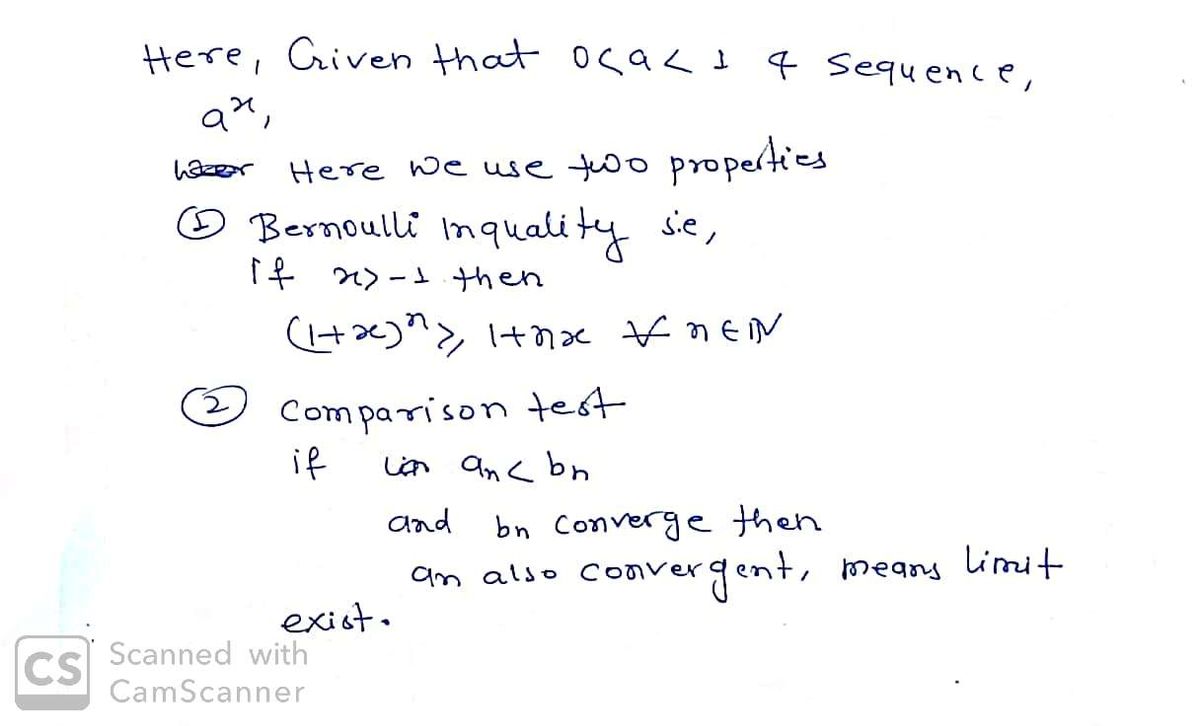 Here, Given that 0<a<1 & Sequence,
aˣ,
Here we use two properties
① Bernoulli Inquality i.e,
If x>-1 then
(1+x)ⁿ ≥ 1+nx ∀ n∈ℕ
② Comparison test
if aₙ < bₙ
and bₙ Converge then
aₙ also convergent, means limit
exist.
CS Scanned with
CamScanner